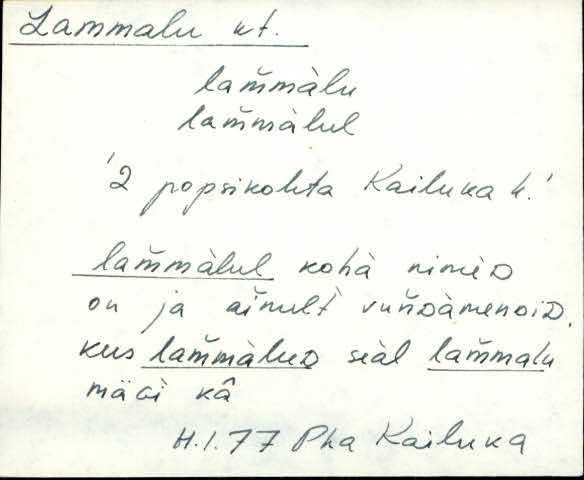 Lammalu kt.
lam̆màlu
lam̆màlul
'2 popsikohta Kailuka k.'
lam̆màlul kohà nimèD
on ja ain̆ult vun̆Dàmenᴅiᴅ.
kus lam̆màluD seàl lam̆malu
mäGi kâ
H.I.77 Pha Kailuka